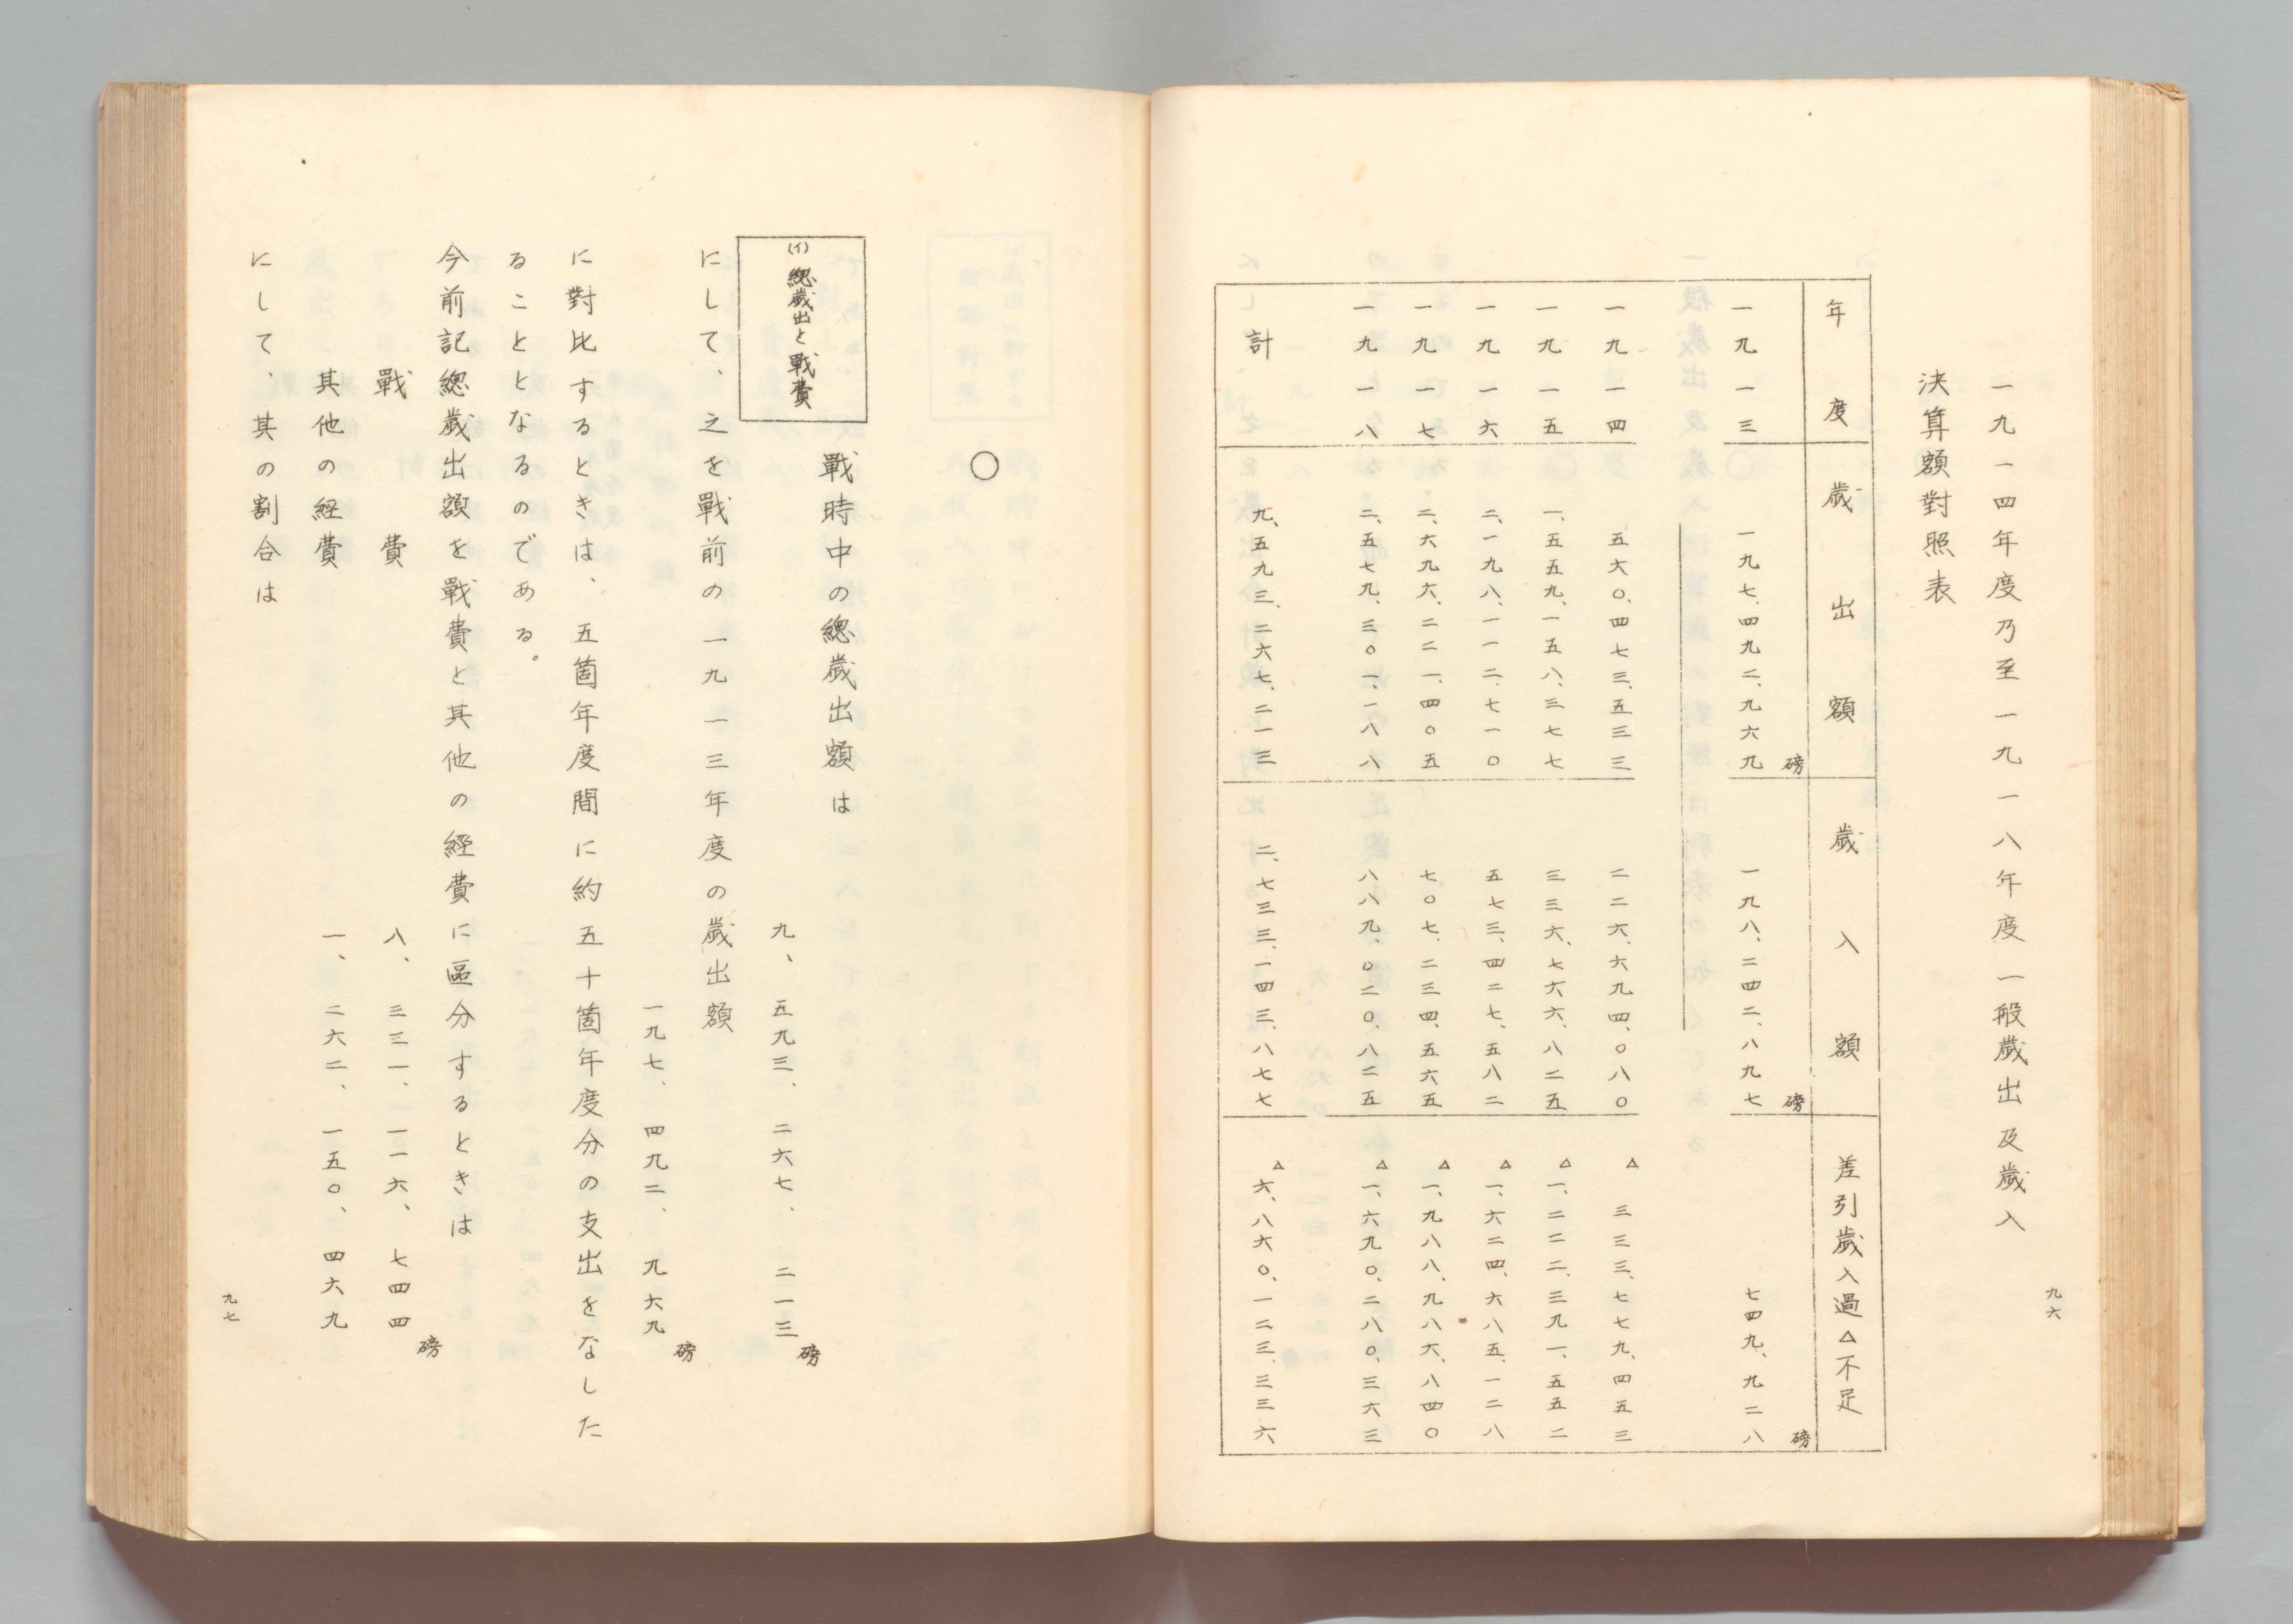 一九一四年度乃至一九一八年度一般歲出及歲入
決算額對照表
年度 歲出額 歲入額 差引歲入過△不足
磅 磅 磅
一九一三 一九七、四九二、九六九 一九八、二四二、八九七 七四九、九二八
一九一四 五六〇、四七三、五三三 二二六、六九四、〇八〇 △三三三、七七九、四五三
一九一五 一、五五九、一五八、三七七 三三六、七六六、八二五 △一、二二二、三九一、五五二
一九一六 二、一九八、一一二、七一〇 五七三、四二七、五八二 △一、六二四、六八五、一二八
一九一七 二、六九六、二二一、四〇五 七〇七、二三四、五六五 △一、九八八、九八六、八四〇
一九一八 二、五七九、三〇一、一八八 八八九、〇二〇、八二五 △一、六九〇、二八〇、三六三
計 九、五九三、二六七、二一三 二、七三三、一四三、八七七 △六、八六〇、一二三、三三六
九六
〇
(イ)總歲出と戰費
戰時中の總歲出額は
九、五九三、二六七、二一三磅
にして、之を戰前の一九一三年度の歲出額
一九七、四九二、九六九磅
に對比するときは、五箇年度間に約五十箇年度分の支出をなした
ることとなるのである。
今前記總歲出額を戰費と其他の經費に區分するときは
戰費 八、三三一、一一六、七四四磅
其他の經費 一、二六二、一五〇、四六九
にして、其の割合は
九七